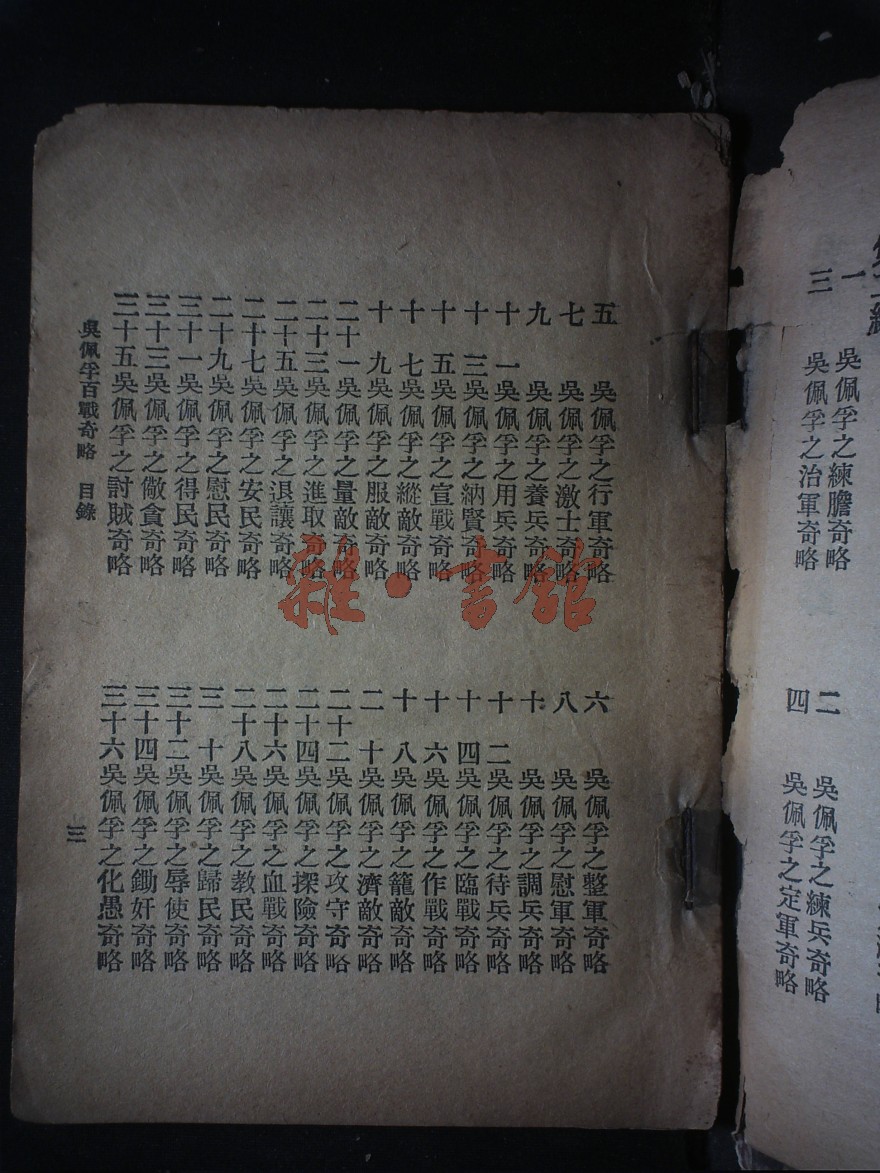 一 吳佩孚之練膽奇略
二 吳佩孚之練兵奇略
三 吳佩孚之治軍奇略
四 吳佩孚之定軍奇略
五 吳佩孚之行軍奇略
六 吳佩孚之整軍奇略
七 吳佩孚之激士奇略
八 吳佩孚之慰軍奇略
九 吳佩孚之養兵奇略
十 吳佩孚之調兵奇略
十一 吳佩孚之用兵奇略
十二 吳佩孚之待兵奇略
十三 吳佩孚之納賢奇略
十四 吳佩孚之臨戰奇略
十五 吳佩孚之宣戰奇略
十六 吳佩孚之作戰奇略
十七 吳佩孚之縱敵奇略
十八 吳佩孚之籠敵奇略
十九 吳佩孚之服敵奇略
二十 吳佩孚之濟敵奇略
二十一 吳佩孚之量敵奇略
二十二 吳佩孚之攻守奇略
二十三 吳佩孚之進取奇略
二十四 吳佩孚之探險奇略
二十五 吳佩孚之退讓奇略
二十六 吳佩孚之血戰奇略
二十七 吳佩孚之安民奇略
二十八 吳佩孚之教民奇略
二十九 吳佩孚之慰民奇略
三十 吳佩孚之歸民奇略
三十一 吳佩孚之得民奇略
三十二 吳佩孚之辱使奇略
三十三 吳佩孚之儆貪奇略
三十四 吳佩孚之鋤奸奇略
三十五 吳佩孚之討賊奇略
三十六 吳佩孚之化愚奇略
吳佩孚百戰奇略 目錄
三
雜·書館